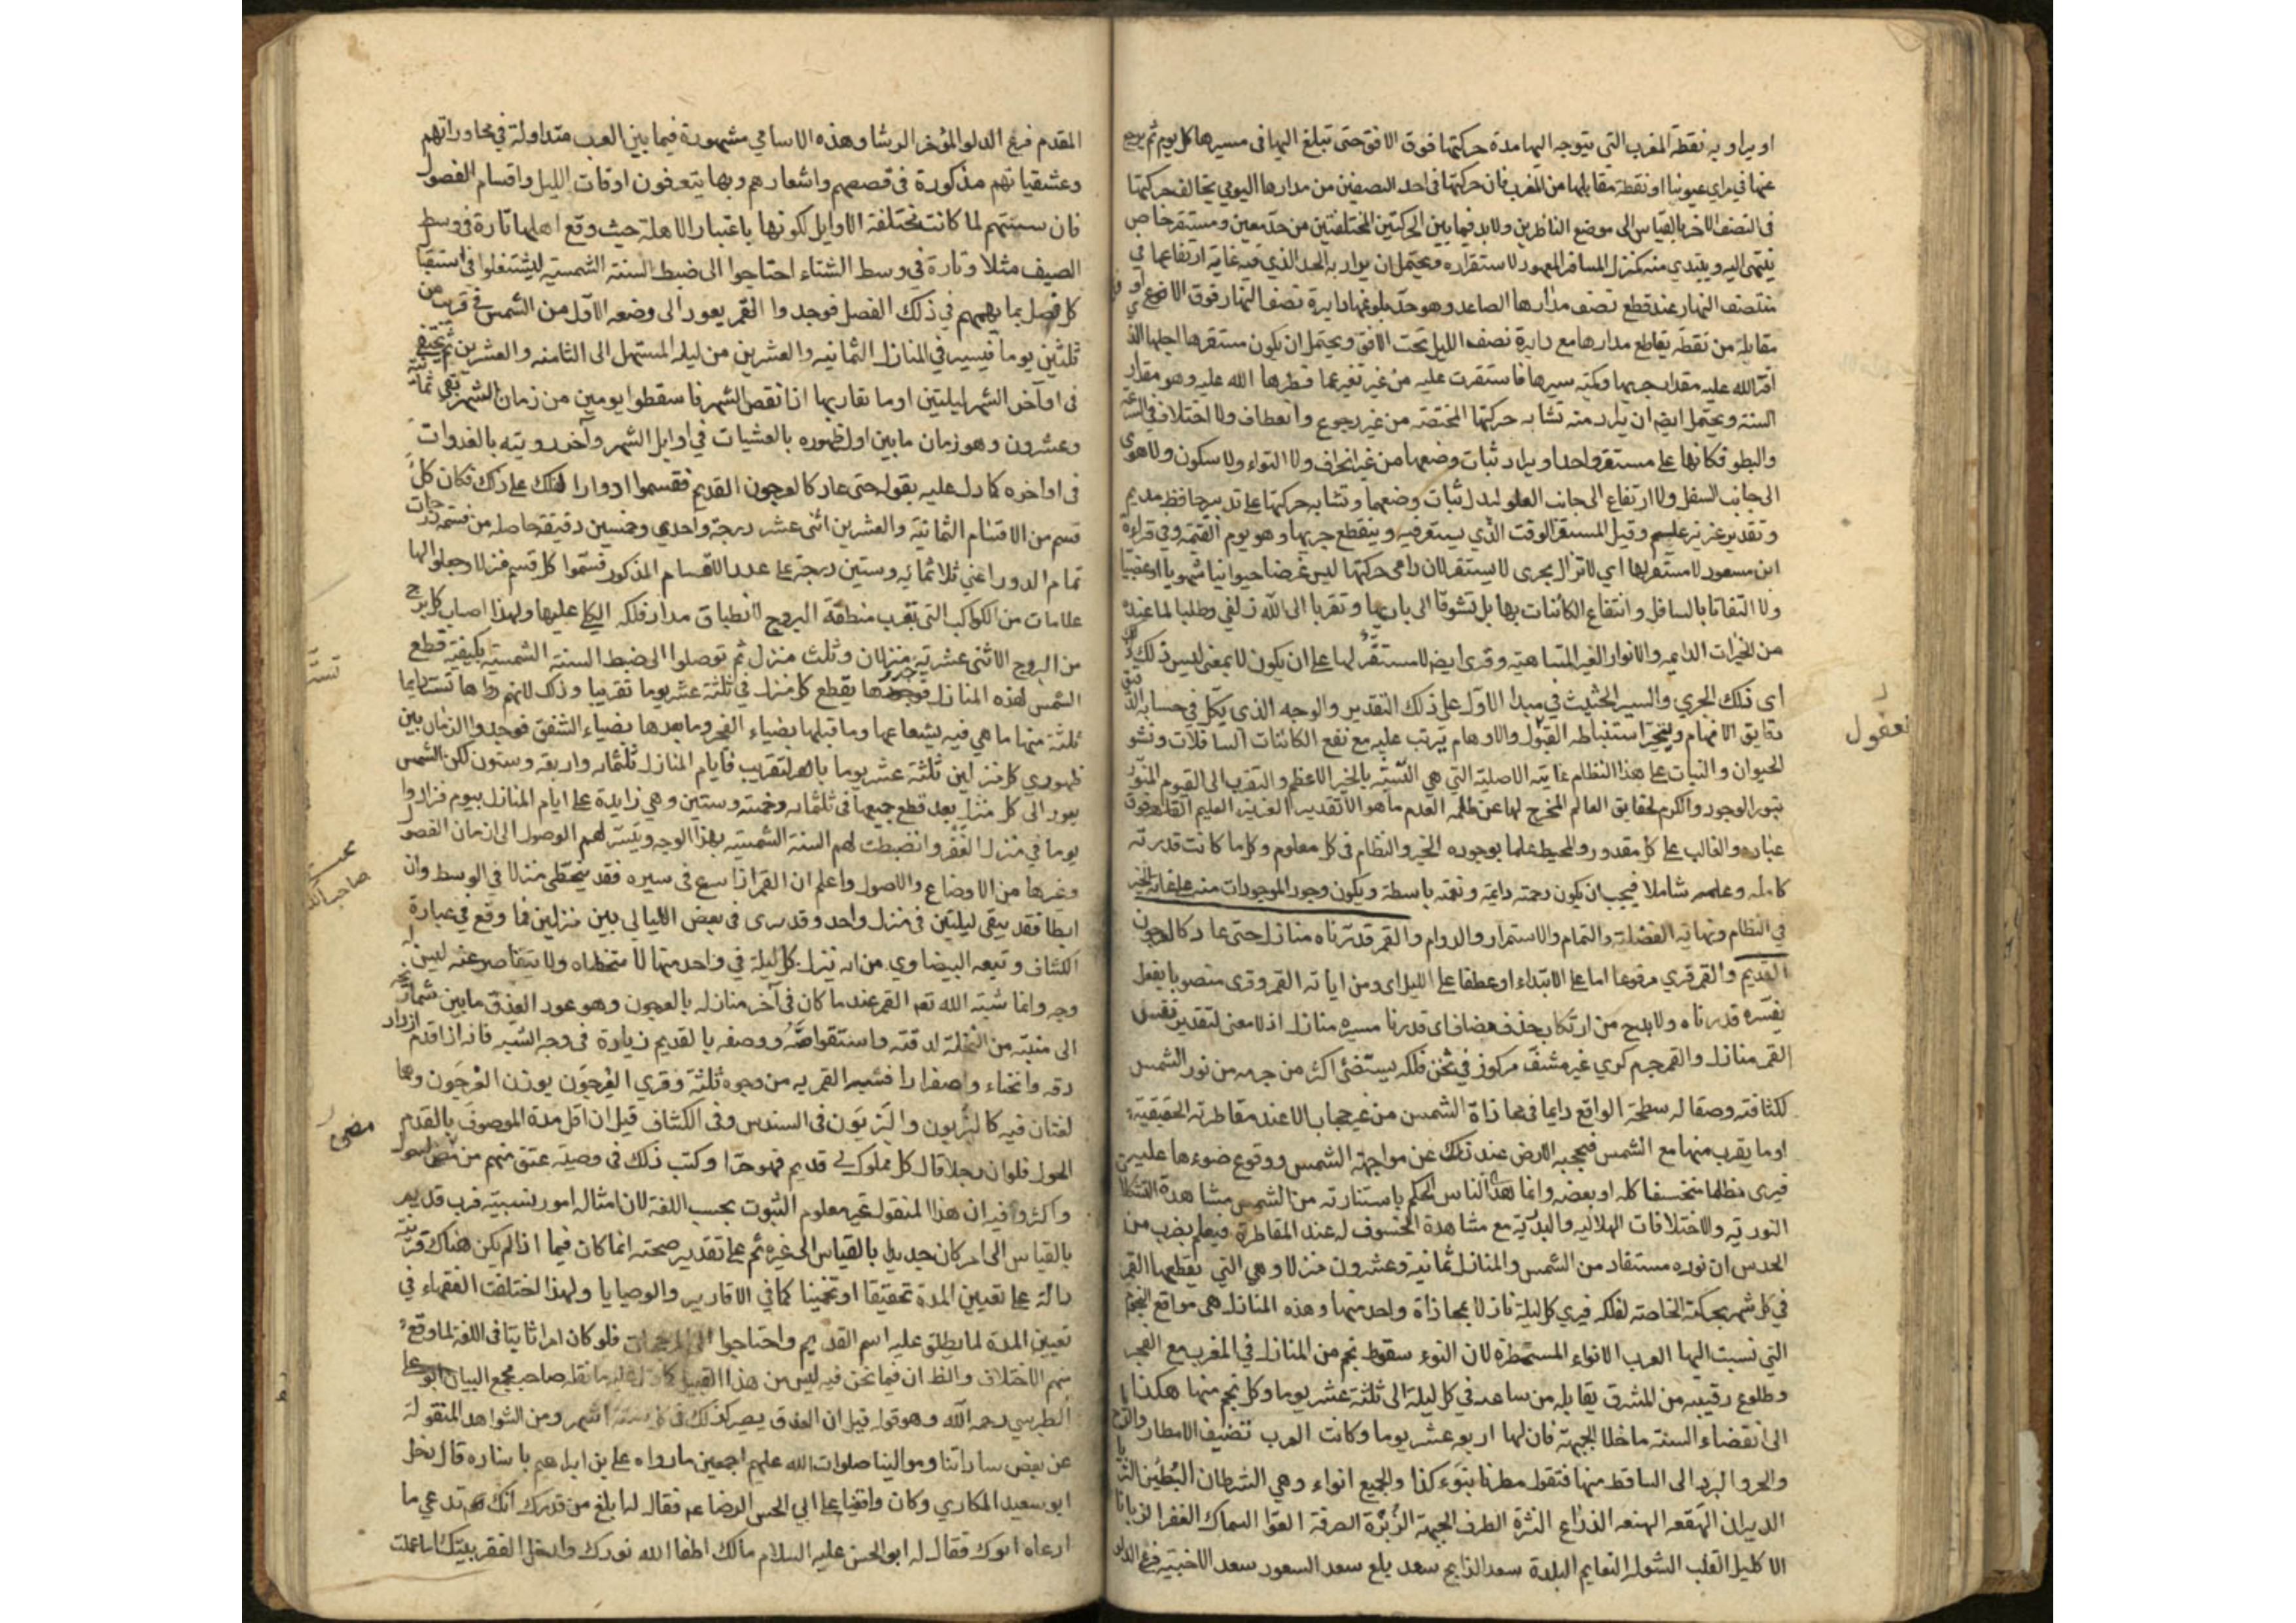 او يراد به نقطة المغرب التى يتوجه اليها مدة حركتها فوق الافق حتى تبلغ اليها فى مسيرها كل يوم ثم يرجع
عنها في مراى عيوننا او نقطة مقابلها من المغرب فان حركتها فى احد النصفين من مدارها اليومي يخالف حركتها
فى النصف الاخر بالقياس الى موضع الناظرين ولا بد فيما بين الحركتين المختلفتين من حد معين ومستقر خاص
ينتهى اليه ويبتدي منه كمنزل المسافر المعهود لاستقراره ويحتمل ان يراد به الحد الذي فيه غاية ارتفاعها في
منتصف النهار عند قطع نصف مدارها الصاعد وهو حد بلوغها دايرة نصف النهار فوق الارض او في
مقابله من نقطة يقاطع مدارها مع دايرة نصف الليل تحت الافق ويحتمل ان يكون مستقرها اجلها الذ
اقر الله عليه مقدار جريها وكمية سيرها فاستقرت عليه من غير تغير عما فطرها الله عليه وهو مقدار
السنة ويحتمل ايضا ان يراد منه تشابه حركتها المختصة من غير رجوع وانعطاف ولا اختلاف في السرعة
والبطو فكانها على مستقر واحد او يراد ثبات وضعها من غير انحراف ولا التواء ولا سكون ولا هوى
الى جانب السفل ولا ارتفاع الى جانب العلو ليدل ثبات وضعها وتشابه حركتها على تدبير حافظ مديم
وتقدير عزيز عليم وقيل المستقر الوقت الذي يستقر فيه وينقطع جريها وهو يوم القيمة وفي قراءة
ابن مسعود لا مستقر لها اي لا تزال يجرى لا يستقر لان داعى حركتها ليس غرضا حيوانيا شهويا او غضبيا
ولا التفاتا بالسافل وانتفاع الكائنات بها بل تشوقا الى باريها وتقربا الى الله زلفى وطلبا لما عنده
من الخيرات الدايمه والانوار الغير المتناهية وقرى ايضا لا مستقر لها على ان يكون لا بمعنى ليس ذلك
اى ذلك الجري والسير الحثيث في مبدا الاول على ذلك التقدير والوجه الذي يكل في حسابه الذ
دقايق الافهام ويتحير استنباطه القبول والاوهام يترتب عليه مع نفع الكائنات السافلات ونشو
الحيوان والنبات على هذا النظام غايته الاصلية التي هي التشبه بالخير الاعظم والتقرب الى القيوم المنور
بنور الوجود والكرم لحقايق العالم المخرج لها عن ظلمه العدم ما هو الا تقدير العزيز العليم القاهر فوق
عباده والغالب على كل مقدور والمحيط علما بوجوده الخير والنظام فى كل معلوم وكل ما كانت قدرته
كامله وعلمه شاملا فيجب ان يكون رحمته دايمة ونعمته باسطة ويكون وجود الموجودات منه على غاية الخير
في النظام ونهاية الفضلية والتمام والاستمرار والدوام والقمر قدرناه منازل حتى عاد كالعرجون
القديم والقمر قري مرفوعا اما على الابتداء او عطفا على الليل اى ومن اياته القمر وقرى منصوبا بفعل
يفسره قدرناه ولا بد ح من ارتكاب حذف مضاف اى قدرنا مسيره منازل اذ لا معنى لتقدير نفس
القمر منازل والقمر جرم كري غير مشف مركوز في ثخن فلكه يستضئ اكثر من جرمه من نور الشمس
لكثافته وصقاله سطحه الواقع دايما فى محاذاة الشمس من غير حجاب الا عند مقاطرته الحقيقية
او ما يقرب منها مع الشمس فيحجبه الارض عند ذلك عن مواجهة الشمس ووقوع ضوءها عليه
فيرى مظلما منخسفا كله او بعضه وانما هدى الناس الحكم باستنارته من الشمس مشاهدة التشكلا
النوريه والاختلافات الهلاليه والبدرية مع مشاهدة الخسوف له عند المقاطرة فيعلم بضرب من
الحدس ان نوره مستفاد من الشمس والمنازل ثمانية وعشرون منزلا وهي التي يقطعها القمر
في كل شهر بحركته الخاصته لفلكه فيري كل ليلة نازلا بمحاذاة واحد منها وهذه المنازل هى مواقع النجوم
التي نسبت اليها العرب الانواء المستمطرة لان النوء سقوط نجم من المنازل في المغرب مع الفجر
وطلوع رقيبه من المشرق يقابله من ساعه في كل ليلة الى ثلثة عشر يوما وكل نجم منها هكذا
الى انقضاء السنة ما خلا الجبهة فان لها اربعه عشر يوما وكانت العرب تضيف الامطار والرياح
والحر والبرد الى الساقط منها فتقول مطرنا بنوء كذا والجميع انواء وهي الشرطان البطين الثريا
الدبران الهقعه الهنعه الذراع النثرة الطرف الجبهة الزبرة الصرفة العوا السماك الغفر الزبانا
الاكليل القلب الشوله النعايم البلدة سعد الذابح سعد بلع سعد السعود سعد الاخبية فرغ الدلو
المقدم فرغ الدلو المؤخر الرشا وهذه الاسامي مشهورة فيما بين العرب متداولة في محاوراتهم
وعشقياتهم مذكورة فى قصصهم واشعارهم وبها يتعرفون اوقات الليل واقسام الفصول
فان سنتهم لما كانت مختلفة الاوايل لكونها باعتبار الاهلة حيث وقع اهلها تارة فى وسط
الصيف مثلا وتارة في وسط الشتاء احتاجوا الى ضبط السنة الشمسية ليشتغلوا فى استقبا
كل فصل بما يهمهم في ذلك الفصل فوجدوا القمر يعود الى وضعه الاول من الشمس في قريب من
ثلثين يوما فيسير في المنازل الثمانيه والعشرين من ليلة المستهل الى الثامنه والعشرين ثم يختفى
فى اواخر الشهر ليلتين او ما تقاربها اذا نقص الشهر فاسقطوا يومين من زمان الشهر بقى ثمانية
وعشرون وهو زمان ما بين اول ظهوره بالعشيات في اوايل الشهر وآخر رويته بالغدوات
فى اواخره كما دل عليه بقوله حتى عاد كالعرجون القديم فقسموا ادوار الفلك على ذلك فكان كل
قسم من الاقسام الثمانية والعشرين اثنى عشر درجة واحدي وخمسين دقيقة حاصله من قسمة درجات
تمام الدور اعني ثلاثمائه وستين درجة على عدد الاقسام المذكور فسموا كل قسم منزلا وجعلوا لها
علامات من الكواكب التي بقرب منطقة البروج لانطباق مدار فلكه الكلي عليها ولهذا اصاب كل برج
من البروج الاثنى عشرية منزلان وثلث منزل ثم توصلوا الى ضبط السنة الشمسية بكيفية قطع
الشمس لهذه المنازل فوجدوها يقطع كل منزل في ثلثة عشر يوما تقريبا وذلك لانهم راوها تستر دايما
ثلثة منها ما هي فيه بشعاعها وما قبلها بضياء الفجر وما بعدها بضياء الشفق فوجدوا الزمان بين
ظهوري كل منزلين ثلثة عشر يوما بالتقريب فايام المنازل ثلثمائه واربعه وستون لكن الشمس
يعود الى كل منزل بعد قطع جميعها فى ثلثمائه وخمسه وستين وهي زايدة على ايام المنازل بيوم فزادوا
يوما في منزل الغفر وانضبطت لهم السنة الشمسيه بهذا الوجه ويتيسر لهم الوصول الى ازمان الفصول
وغيرها من الاوضاع والاصول واعلم ان القمر اذا سرع فى سيره فقد يتخطى منزلا في الوسط وان
ابطا فقد يبقى ليلتين فى منزل واحد وقد يرى فى بعض الليالي بين منزلين فما وقع في عبارة
الكشاف وتبعه البيضاوي من انه ينزل كل ليلة في واحد منها لا يتخطاه ولا يتقاصر عنه ليس له
وجه وانما شبه الله تعه القمر عندما كان فى آخر منازله بالعرجون وهو عود العذق ما بين شماريخه
الى منبته من النخلة لدقته واستقواسه ووصفه بالقديم زيادة فى وجه الشبه فانه اذا قدم ازداد
دقه وانحناء واصفرارا فشبه القمر به من وجوه ثلثة وقري العرجون بوزن الفرجون وهما
لغتان فيه كالبزيون والبزيون فى السندس وفى الكشاف قيل ان اقل مدة الموصوف بالقديم
الحول فلو ان رجلا قال كل مملوك لي قديم فهو حر او كتب ذلك فى وصيته عتق منهم من مضى له حول
واكثر وفيه ان هذا المنقول غير معلوم الثبوت بحسب اللغة لان امثاله امور نسبية فرب قديم
بالقياس الى امر كان جديدا بالقياس الى غيره ثم على تقدير صحته انما كان فيما اذا لم يكن هناك قرينة
دالة على تعيين المدة تحقيقا او تخمينا كما في الاقارير والوصايا ولهذا اختلفت الفقهاء في
تعيين المدة لما يطلق عليه اسم القديم واحتاجوا الى المرجحات فلو كان امرا ثابتا فى اللغة لما وقع
منهم الاختلاف والظ ان فيما نحن فيه ليس من هذا القبيل كما دل عليه ما نقله صاحب مجمع البيان ابو علي
الطبرسي رحمه الله وهو قوله قيل ان العذق يصير كذلك فى كل ستة اشهر ومن الشواهد المنقولة
عن بعض ساداتنا وموالينا صلوات الله عليهم اجمعين ما رواه علي بن ابراهيم باسناده قال دخل
ابو سعيد المكاري وكان واقفيا على ابي الحسن الرضا عم فقال له ابلغ من قدرك انك تدعي ما
ادعاه ابوك فقال له ابو الحسن عليه السلام مالك اطفا الله نورك وادخل الفقر بيتك اما علمت